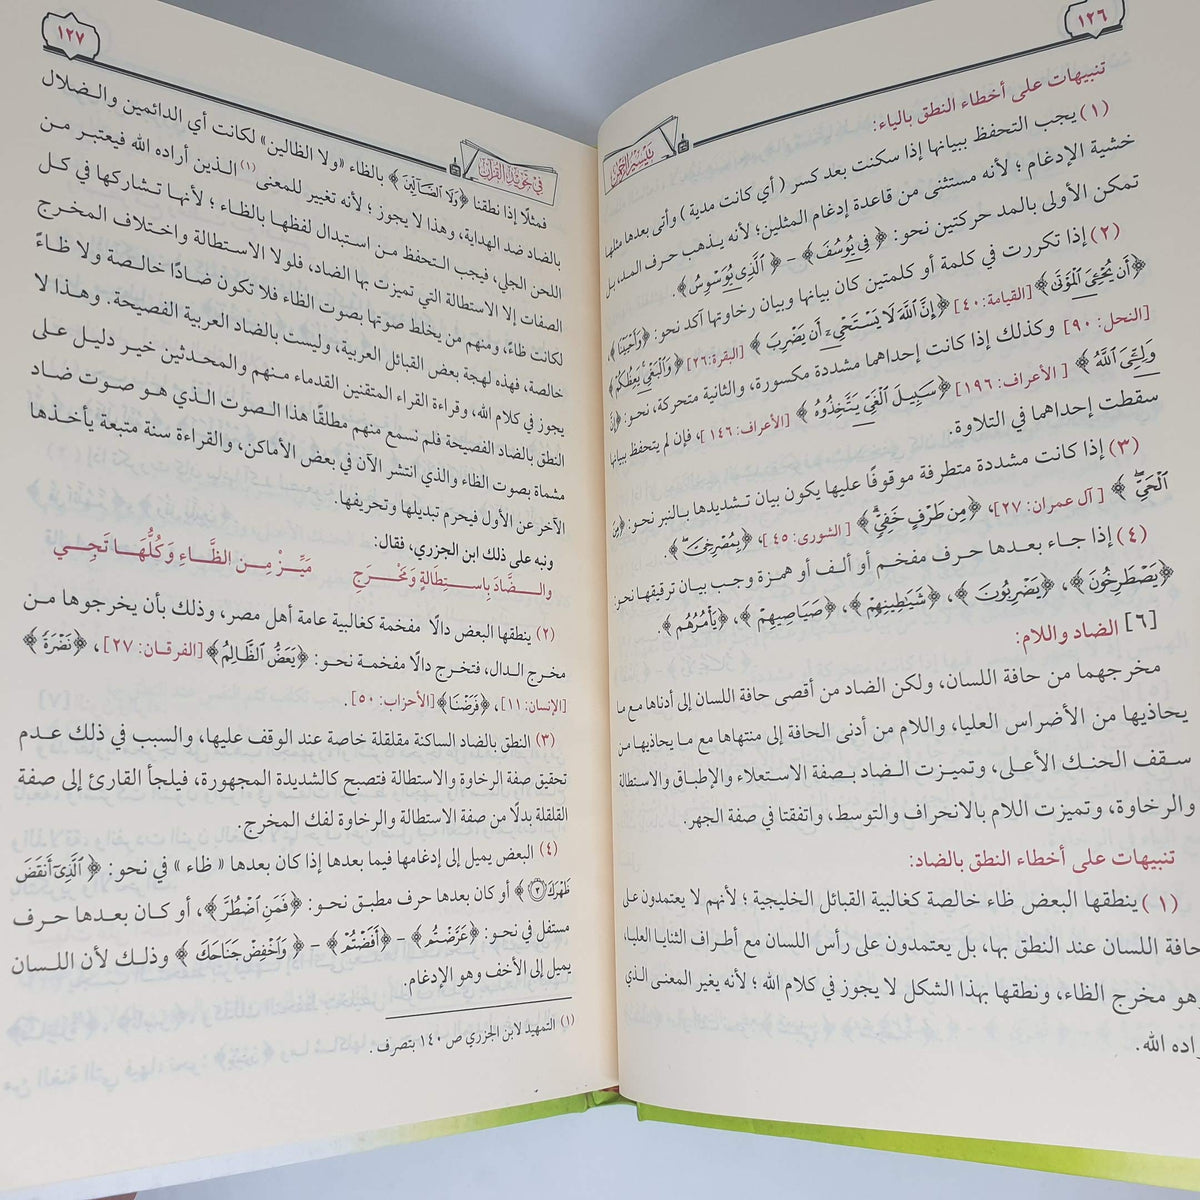 ١٢٦
تيسير الرحمن
تنبيهات على أخطاء النطق بالياء:
(١) يجب التحفظ ببيانها إذا سكنت بعد كسر (أي كانت مدية) وأتى بعدها مثلها
خشية الإدغام؛ لأنه مستثنى من قاعدة إدغام المثلين؛ لأنه يذهب حرف المد، بل
تمكن الأولى بالمد حركتين نحو: ﴿فِي يُوسُفَ﴾ – ﴿الَّذِي يُوَسْوِسُ﴾.
(٢) إذا تكررت في كلمة أو كلمتين كان بيانها وبيان رخاوتها آكد نحو: ﴿وَأَحْيَيْنَا﴾،
﴿أَن يُحْـِۧيَ الْمَوْتَىٰ﴾ [القيامة: ٤٠] ﴿إِنَّ اللَّهَ لَا يَسْتَحْيِۦٓ أَن يَضْرِبَ﴾ [البقرة: ٢٦] ﴿وَالْبَغْيِ يَعِظُكُمْ﴾
[النحل: ٩٠] وكذلك إذا كانت إحداهما مشددة مكسورة، والثانية متحركة، نحو: ﴿إِنَّ
وَلِـِّۧيَ اللَّهُ﴾ [الأعراف: ١٩٦] ﴿سَبِيلَ الْغَيِّ يَتَّخِذُوهُ﴾ [الأعراف: ١٤٦]، فإن لم يتحفظ ببيانها
سقطت إحداهما في التلاوة.
(٣) إذا كانت مشددة متطرفة موقوفًا عليها يكون بيان تشديدها بالنبر نحو: ﴿مِنَ
الْحَيِّ﴾ [آل عمران: ٢٧]، ﴿مِن طَرْفٍ خَفِيٍّ﴾ [الشورى: ٤٥]، ﴿بِمُصْرِخِيَّ﴾.
(٤) إذا جاء بعدها حرف مفخم أو ألف أو همزة وجب بيان ترقيقها نحو:
﴿يَصْطَرِخُونَ﴾، ﴿يَضْرِبُونَ﴾، ﴿شَيَاطِينِهِمْ﴾، ﴿صَيَاصِيهِمْ﴾، ﴿يَأْمُرُهُم﴾.
[٦] الضاد واللام:
مخرجهما من حافة اللسان، ولكن الضاد من أقصى حافة اللسان إلى أدناها مع ما
يحاذيها من الأضراس العليا، واللام من أدنى الحافة إلى منتهاها مع ما يحاذيها من
سقف الحنك الأعلى، وتميزت الضاد بصفة الاستعلاء والإطباق والاستطالة
والرخاوة، وتميزت اللام بالانحراف والتوسط، واتفقتا في صفة الجهر.
تنبيهات على أخطاء النطق بالضاد:
(١) ينطقها البعض ظاء خالصة كغالبية القبائل الخليجية؛ لأنهم لا يعتمدون على
حافة اللسان عند النطق بها، بل يعتمدون على رأس اللسان مع أطراف الثنايا العليا،
هو مخرج الظاء، ونطقها بهذا الشكل لا يجوز في كلام الله؛ لأنه يغير المعنى الذي
راده الله.
١٢٧
في تجويد القرآن
فمثلًا إذا نطقنا ﴿وَلَا الضَّالِّينَ﴾ بالظاء «ولا الظالين» لكانت أي الدائمين والضلال
بالضاد ضد الهداية، وهذا لا يجوز؛ لأنه تغيير للمعنى (١) الذين أراده الله فيعتبر من
اللحن الجلي، فيجب التحفظ من استبدال لفظها بالظاء؛ لأنها تشاركها في كل
الصفات إلا الاستطالة التي تميزت بها الضاد، فلولا الاستطالة واختلاف المخرج
لكانت ظاءً، ومنهم من يخلط صوتها بصوت الظاء فلا تكون ضادًا خالصة ولا ظاءً
خالصة، فهذه لهجة بعض القبائل العربية، وليست بالضاد العربية الفصيحة. وهذا لا
يجوز في كلام الله، وقراءة القراء المتقنين القدماء منهم والمحدثين خير دليل على
النطق بالضاد الفصيحة فلم نسمع منهم مطلقًا هذا الصوت الذي هو صوت ضاد
مشماة بصوت الظاء والذي انتشر الآن في بعض الأماكن، والقراءة سنة متبعة يأخذها
الآخر عن الأول فيحرم تبديلها وتحريفها.
ونبه على ذلك ابن الجزري، فقال:
والضَّادَ بِاسْتِطَالَةٍ وَمَخْرَجِ مَيِّزْ مِنَ الظَّاءِ وَكُلُّهَا تَجِي
(٢) ينطقها البعض دالًا مفخمة كغالبية عامة أهل مصر، وذلك بأن يخرجوها من
مخرج الدال، فتخرج دالًا مفخمة نحو: ﴿يَعَضُّ الظَّالِمُ﴾ [الفرقان: ٢٧]، ﴿نَضْرَةً﴾
[الإنسان: ١١]، ﴿فَرَضْنَا﴾ [الأحزاب: ٥٠].
(٣) النطق بالضاد الساكنة مقلقلة خاصة عند الوقف عليها، والسبب في ذلك عدم
تحقيق صفة الرخاوة والاستطالة فتصبح كالشديدة المجهورة، فيلجأ القارئ إلى صفة
القلقلة بدلًا من صفة الاستطالة والرخاوة لفك المخرج.
(٤) البعض يميل إلى إدغامها فيما بعدها إذا كان بعدها «ظاء» في نحو: ﴿الَّذِي أَنقَضَ
ظَهْرَكَ ٣﴾ أو كان بعدها حرف مطبق نحو: ﴿فَمَنِ اضْطُرَّ﴾، أو كان بعدها حرف
مستفل في نحو: ﴿عَرَّضْتُم﴾ – ﴿أَفَضْتُمْ﴾ – ﴿وَاخْفِضْ جَنَاحَكَ﴾ وذلك لأن اللسان
يميل إلى الأخف وهو الإدغام.
(١) التمهيد لابن الجزري ص ١٤٠ بتصرف.